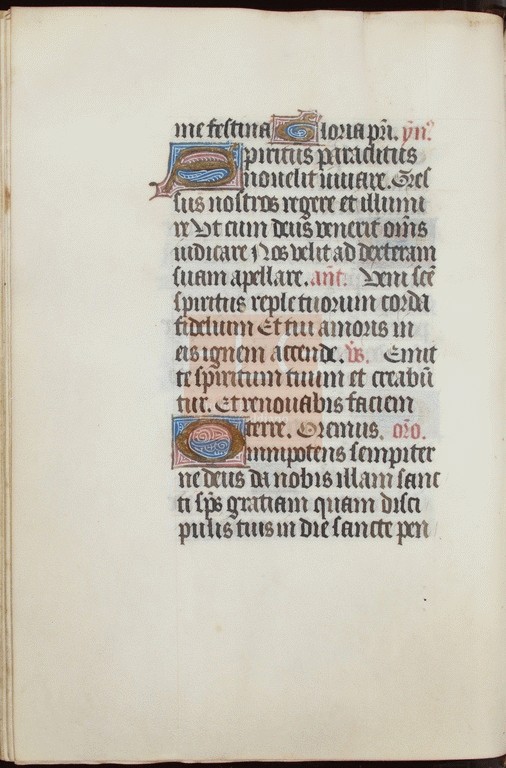 me festina Gloria pr̄i. ym̄.
Spiritus paraclitus
nos velit iuuare. Gres
sus nostros regere et illumi
re Vt cum deus venerit om̄s
iudicare Nos velit ad dexteram
suam apellare. ant̄. Veni sc̄e
spiritus reple tuorum corda
fidelium Et tui amoris in
eis ignem accende. v̄s. Emit
te spiritum tuum et creabū
tur. Et renouabis faciem
terre. Oremus. orō.
Omnipotens sempiter
ne deus da nobis illam sanc
ti sp̄s gratiam quam disci
pulis tuis in die sancte pen